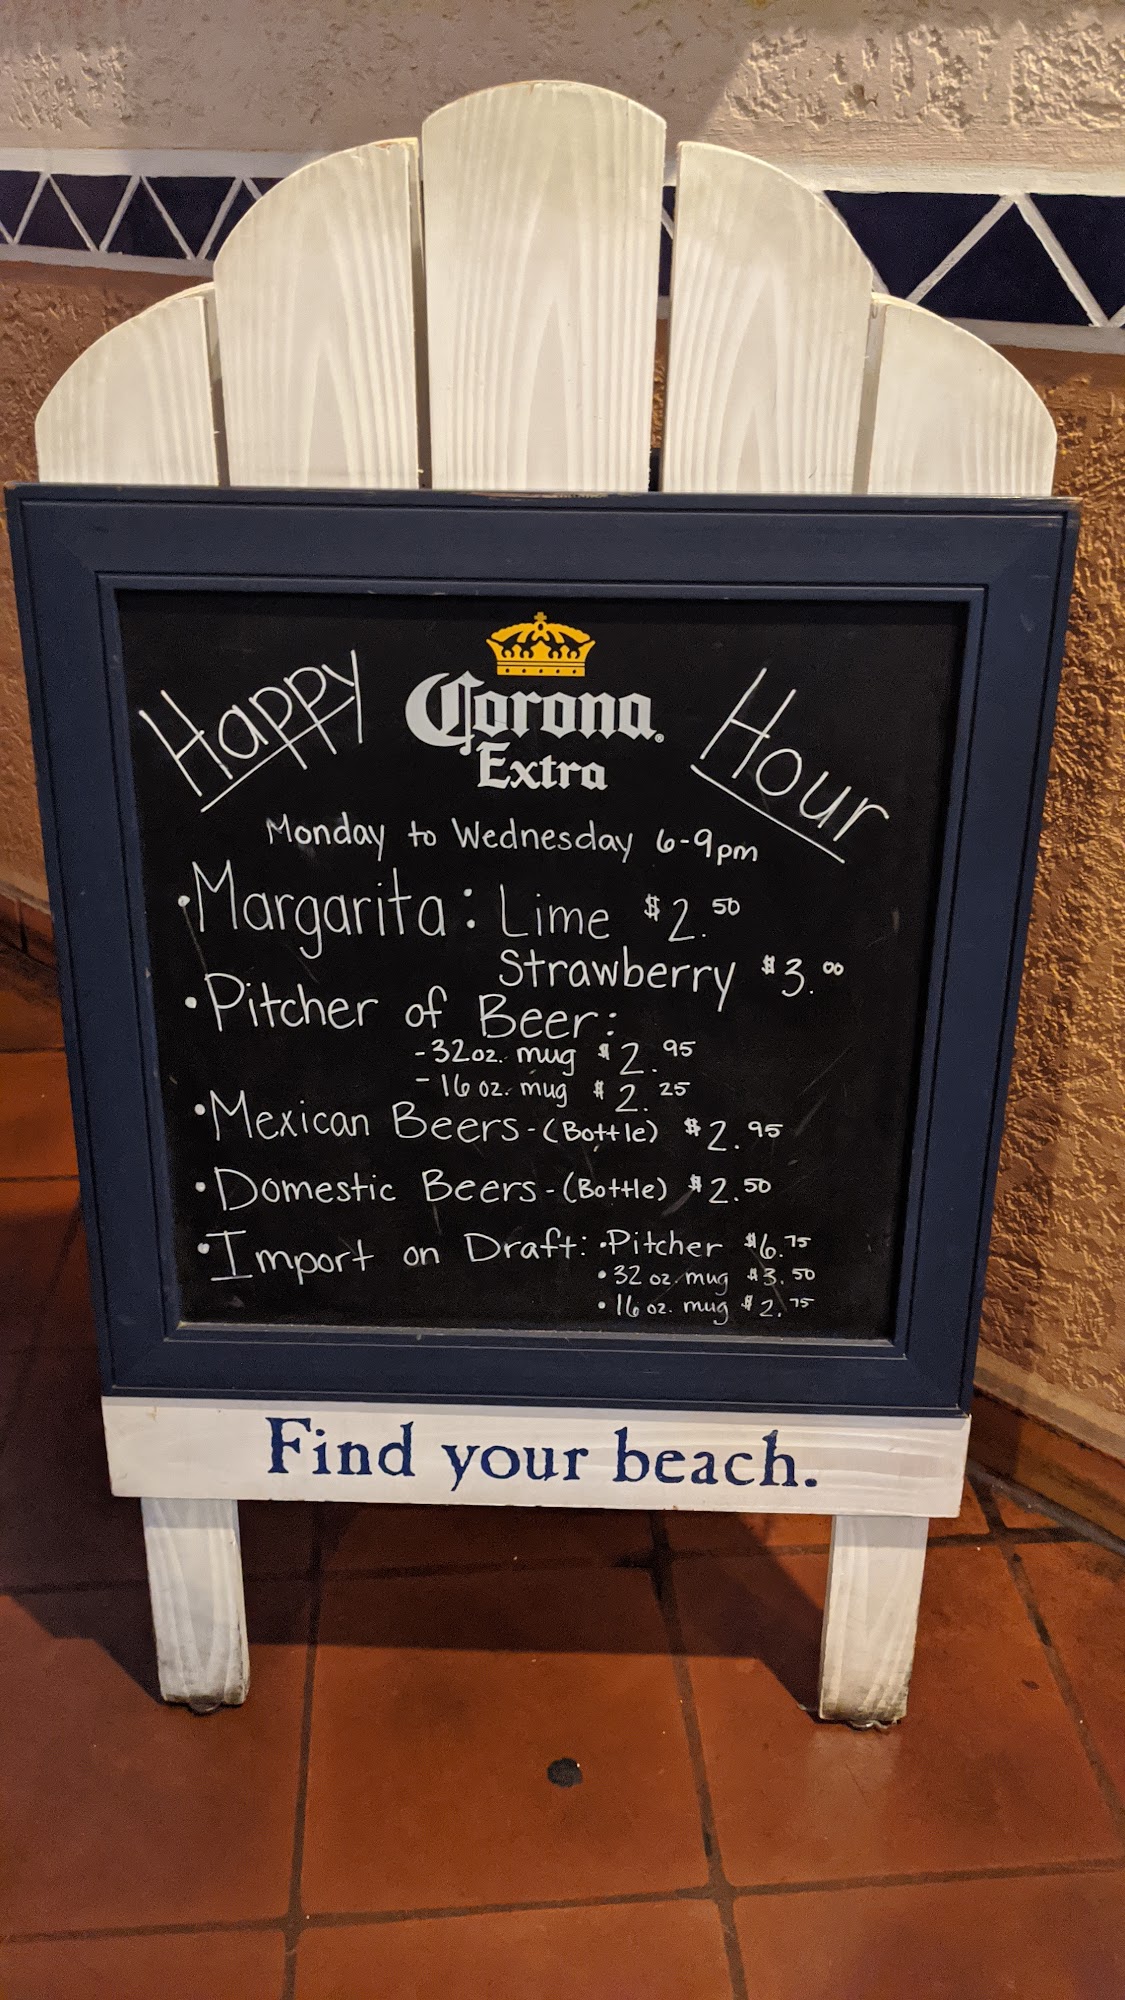 Happy Corona Extra Hour
Monday to Wednesday 6-9pm
•Margarita: Lime $2.50
Strawberry $3.00
•Pitcher of Beer:
-32oz. mug $2.95
-16oz. mug $2.25
•Mexican Beers-(Bottle) $2.95
•Domestic Beers-(Bottle) $2.50
•Import on Draft: •Pitcher $6.75
•32 oz. mug $3.50
•16 oz. mug $2.75
Find your beach.